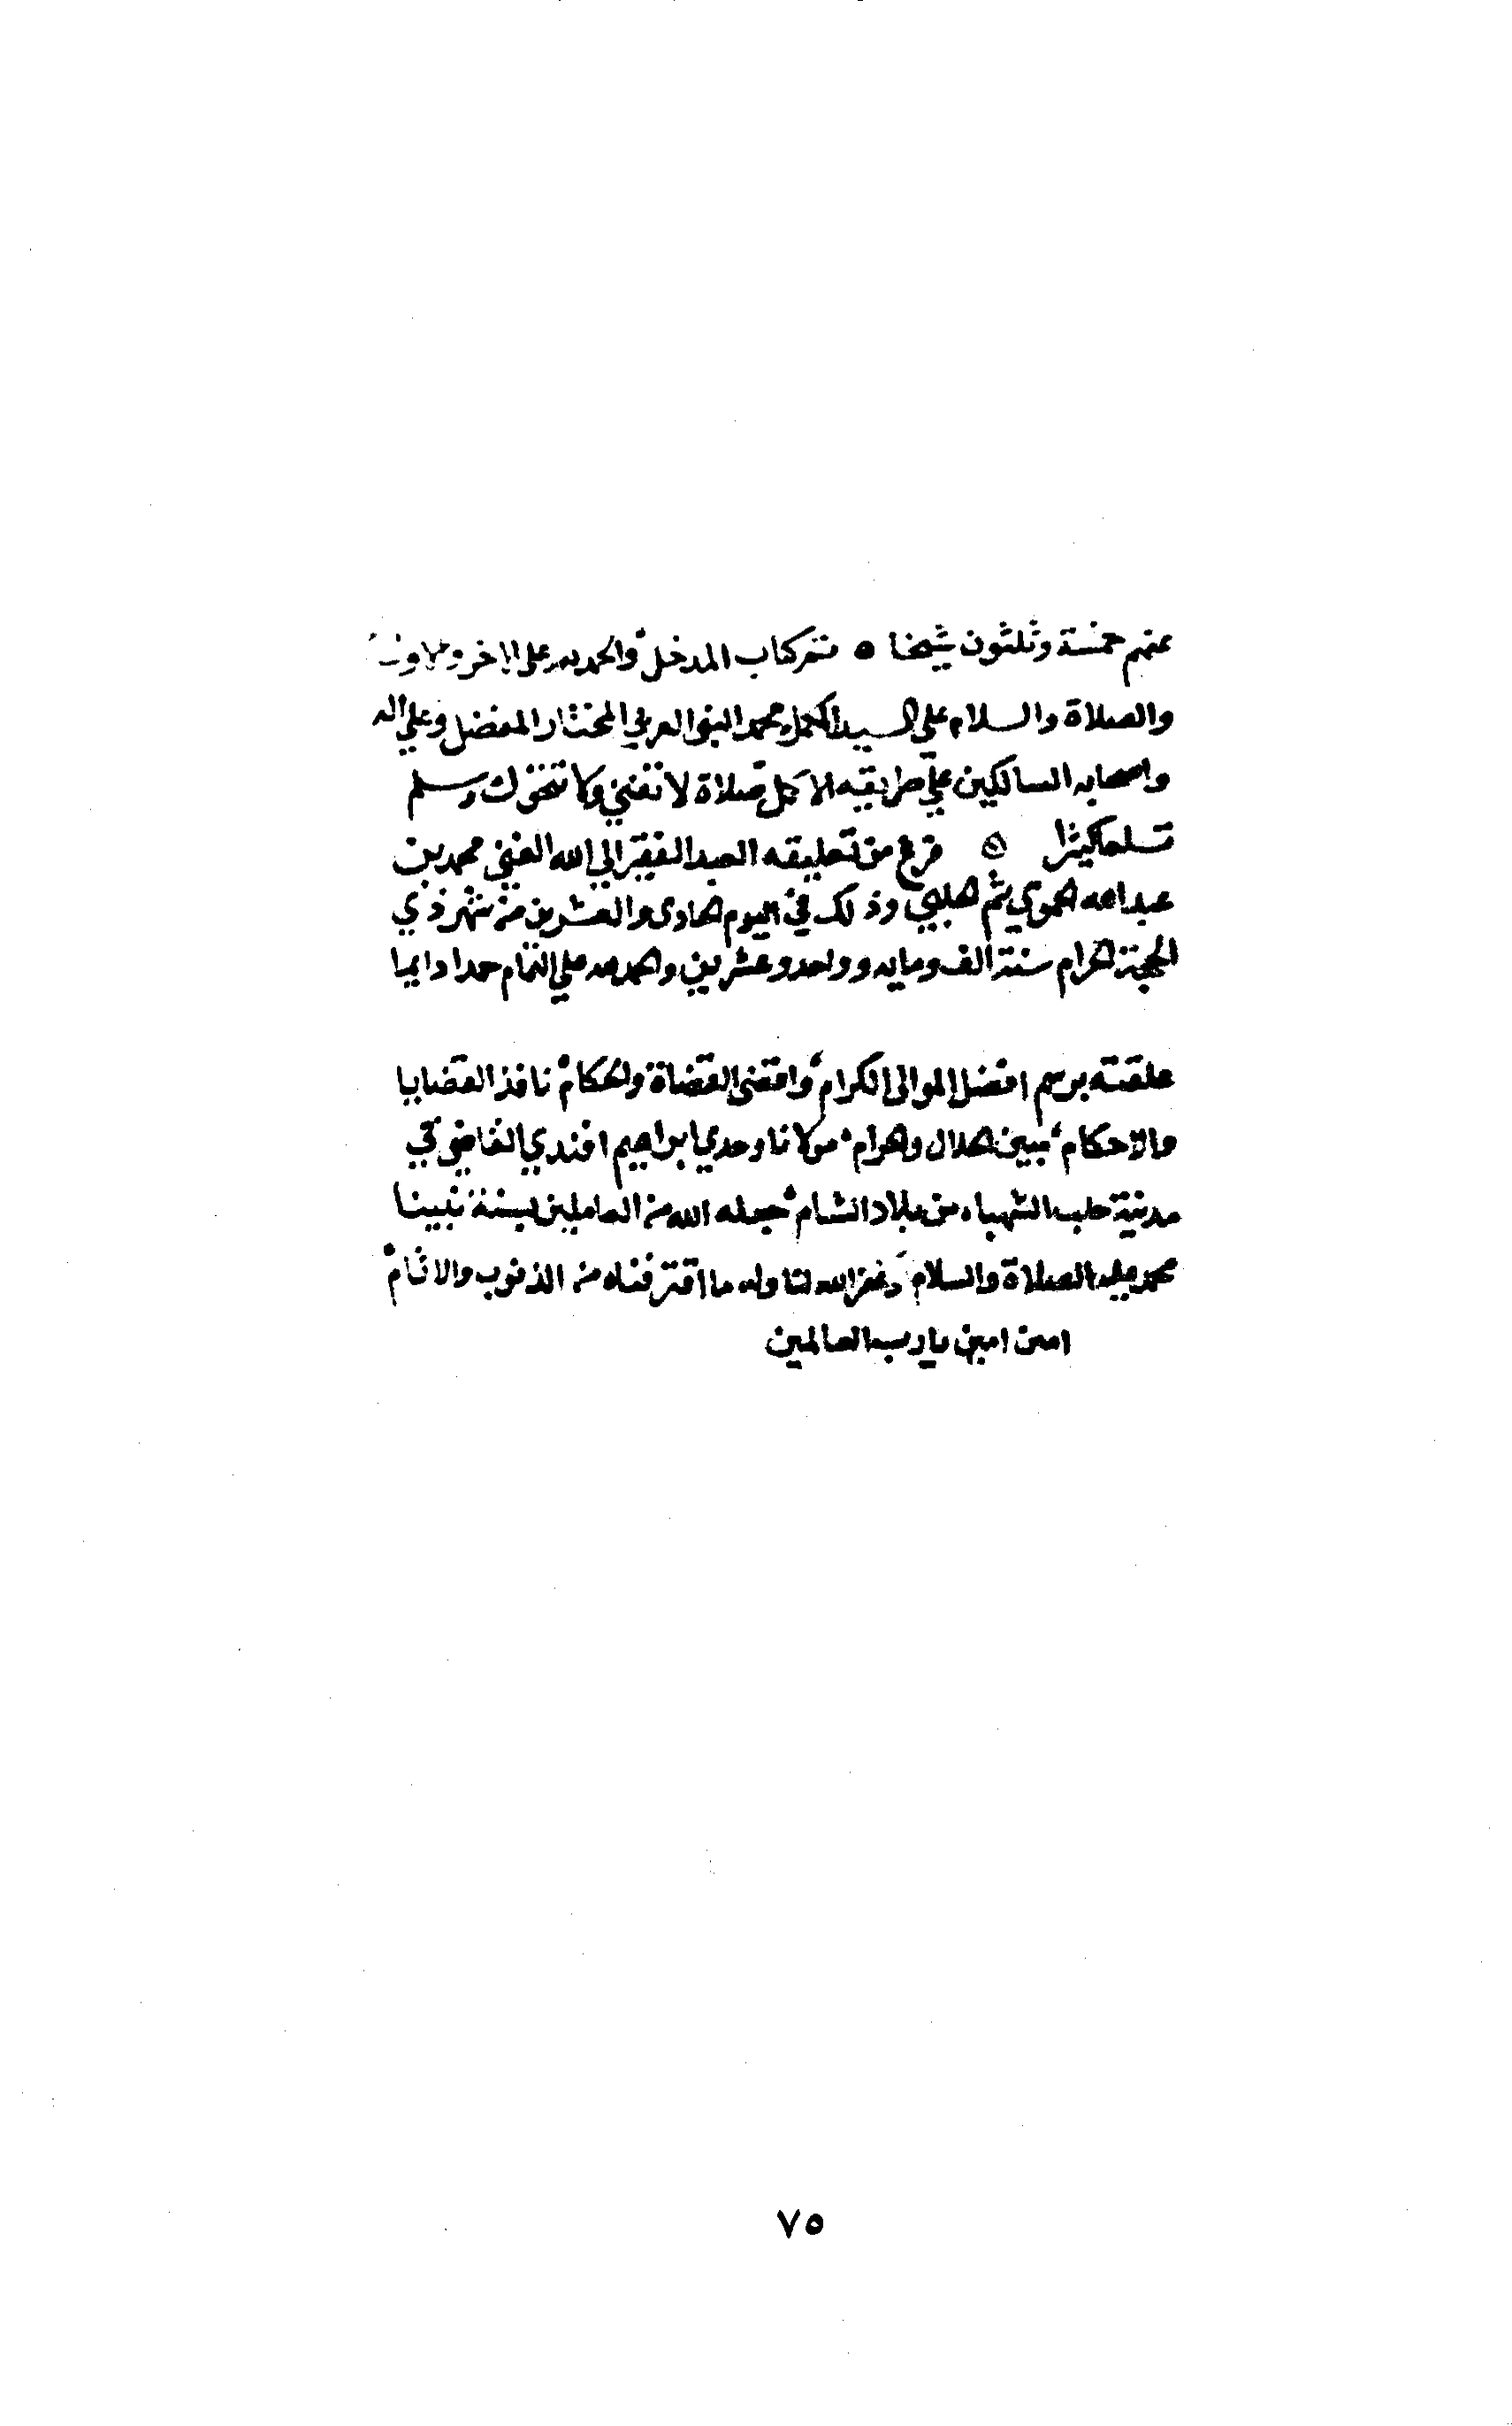 عنهم خمسة وثلثون شيخا ٥ تم كتاب المدخل والحمد لله على الاخر والاول
والصلاة والسلام على السيد الاكمل محمد النبي العربي المختار المفضل وعلى اله
واصحابه السالكين على طريقه الاكمل صلاة لا تفنى ولا تتحول وسلم
تسليما كثيرا ٥ فرغ من تعليقه العبد الفقير الي الله الغني محمد بن
عبد الله الحموي ثم الحلبي وذلك في اليوم الحادي والعشرين من شهر ذي
الحجة الحرام سنة الف ومايه وواحد وعشرين والحمد لله علي التمام حمدا دايما
علقته برسم افضل الموالى الكرام واقضى القضاة والحكام نافذ القضايا
والاحكام مبين الحلال والحرام مولانا وحدي ابراهيم افندي القاضي في
مدينة حلب الشهباء من بلاد الشام جعله الله من العاملين بسنة نبينا
محمد عليه الصلاة والسلام وغفر الله لنا وله ما اقترفناه من الذنوب والاثام
امين امين يا رب العالمين
٧٥